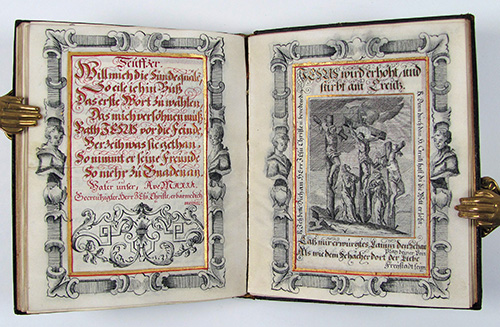 Seuffzer.
Will mich die Sünde quälen,
So eile ich in Buß
Das erste Wort zu wählen,
Das mich versöhnen muß,
Bath JESUS vor die Feinde,
Verzeih was sie gethan,
So nimmt er seine Freunde
So mehr zu Gnaden an.
Vater unser, Ave MARIA.
Gecreutzigter Herr JEsu Christe, erbarme dich
JESUS wird erhöht, und
stirbt am Creutz.
Laß nur erwürgtes Lamm den
Als wie dem Schächer dort der Liebe
Freystadt seyn.